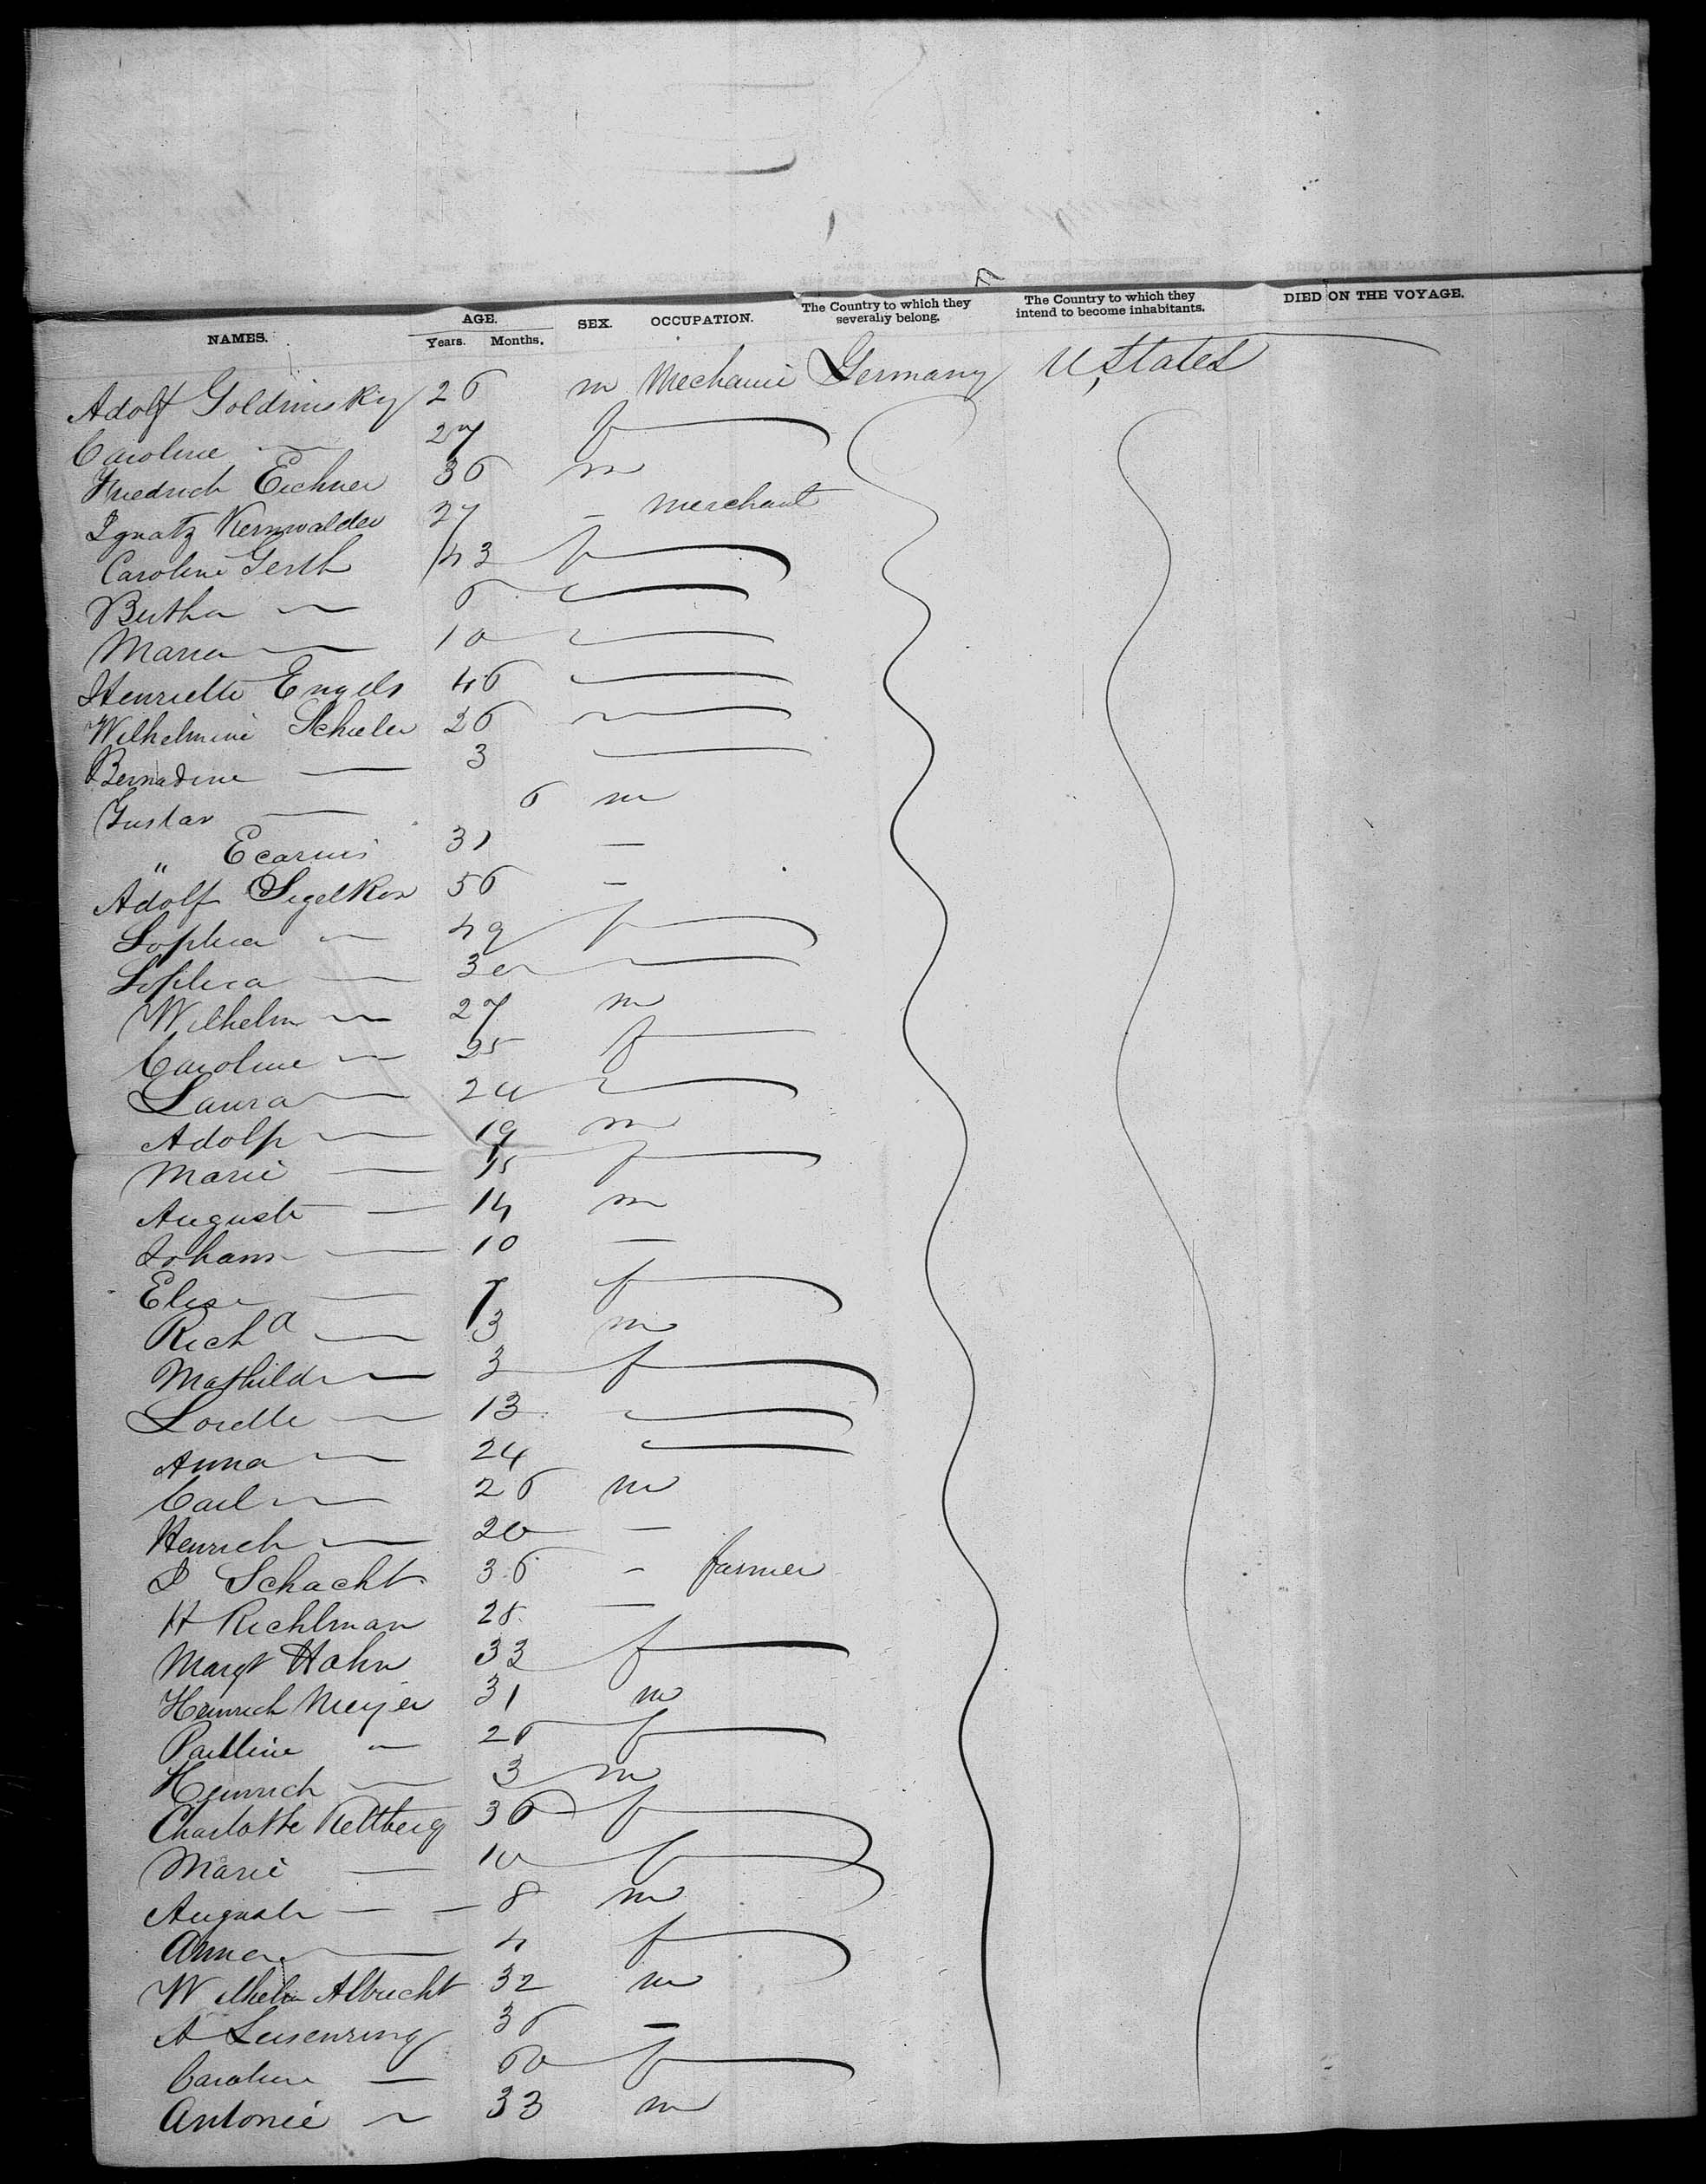 NAMES. AGE. Years. Months. SEX. OCCUPATION. The Country to which they severally belong. The Country to which they intend to become inhabitants. DIED ON THE VOYAGE.
Adolf Goldminsky 26 m Mechanic Germany U, States
Caroline — 27 f
Friedrich Eichner 36 m
Ignatz 27 – merchant
Caroline Gerth 43 f
Bertha — 6
Maria — 10
Henriette Engels 46
Wilhelmine Schieler 26
Bernadine — 3
Gustav — 6 m
" Ecarius 31 —
Adolf Segelkon 56 –
Sophia — 49 f
Sophia — 30
Wilhelm — 27 m
Caroline — 25 f
Laura — 20
Adolf — 19 m
Marie — 15 f
August — 14 m
Johann — 10 —
Elise — 7 f
Richd — 3 m
Mathilde — 3 f
Lorette — 13
Anna — 24
Carl — 26 m
Henrich — 20 —
J Schacht 36 – farmer
H Richlman 28 —
Margt Hahn 33 f
Heinrich Meyer 31 m
Pauline — 26 f
Heinrich — 3 m
Charlotte Rettberg 36 f
Marie — 10 f
August — 8 m
Anna — 4 f
Wilhelm Albrecht 32 m
A Leisenring 36 –
Caroline — 60 f
Antonie — 33 m